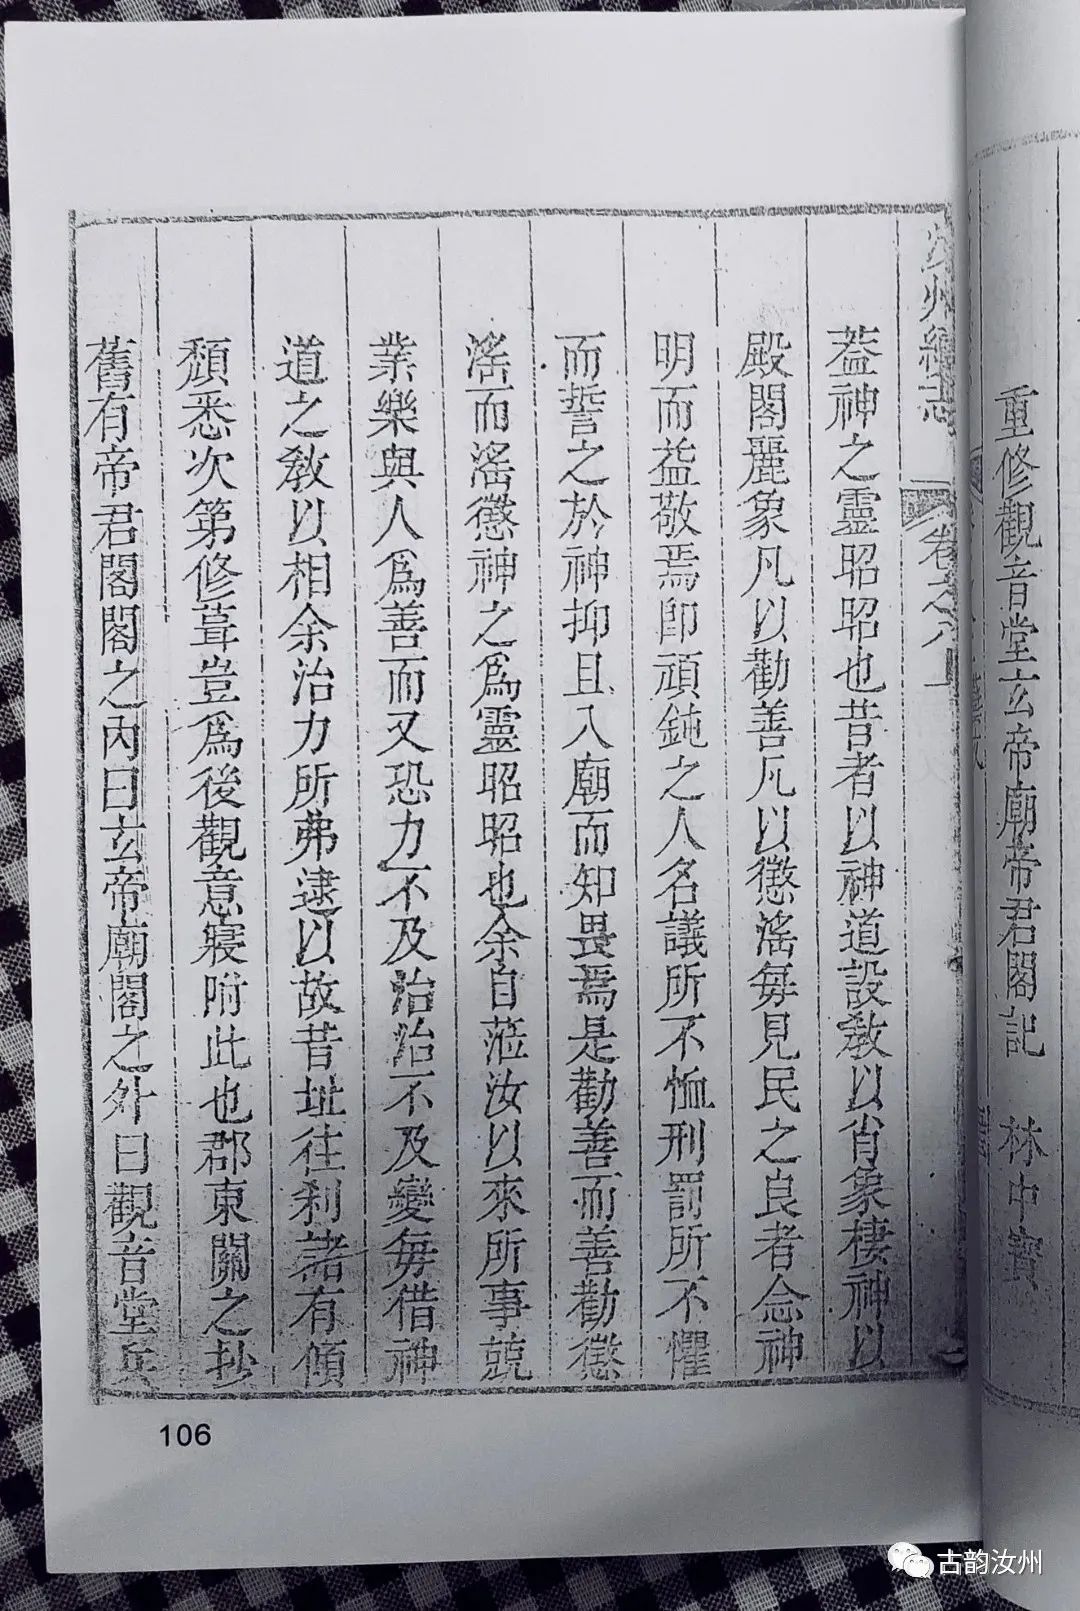 重修觀音堂玄帝廟帝君閣記 林中寶
汝州續志 卷之八
葢神之靈昭昭也昔者以神道設敎以肖象棲神以
殿閣麗象凡以勸善凡以懲滛每見民之良者念神
明而益敬焉卽頑鈍之人名議所不恤刑罰所不懼
而誓之於神抑且入廟而知畏焉是勸善而善勸懲
滛而滛懲神之爲靈昭昭也余自蒞汝以來所事兢
業樂與人爲善而又恐力不及治治不及變每借神
道之敎以相余治力所弗逮以故昔址往刹諸有傾
頽悉次第修葺豈爲後觀意寢附此也郡東關之抄
舊有帝君閣閣之內曰玄帝廟閣之外曰觀音堂兵
106
古韵汝州